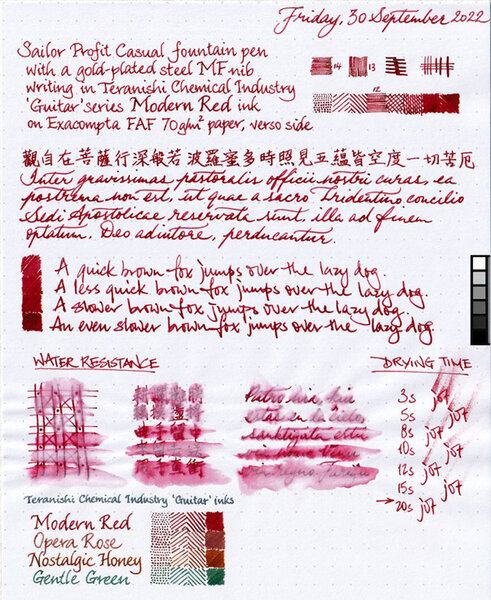 Friday, 30 September 2022
Sailor Profit Casual fountain pen
with a gold-plated steel MF nib
writing in Teranishi Chemical Industry
'Guitar' series Modern Red ink
on Exacompta FAF 70g/m² paper, verso side
14 13
12
觀自在菩薩行深般若波羅蜜多時照見五蘊皆空度一切苦厄
Inter gravissimas pastoralis officii nostri curas, ea
postrema non est, ut quae a sacro Tridentino concilio
Sedi Apostolicae reservata sunt, illa ad finem
optatum, Deo adiutore, perducantur.
A quick brown fox jumps over the lazy dog.
A less quick brown fox jumps over the lazy dog.
A slower brown fox jumps over the lazy dog.
An even slower brown fox jumps over the lazy dog.
WATER RESISTANCE
Patro nia, kiu
estas en la
sanktigata estu
DRYING TIME
3s jot
5s jot
8s jot
10s jot
12s jot
15s jot
20s jot
Teranishi Chemical Industry 'Guitar' inks
Modern Red
Opera Rose
Nostalgic Honey
Gentle Green